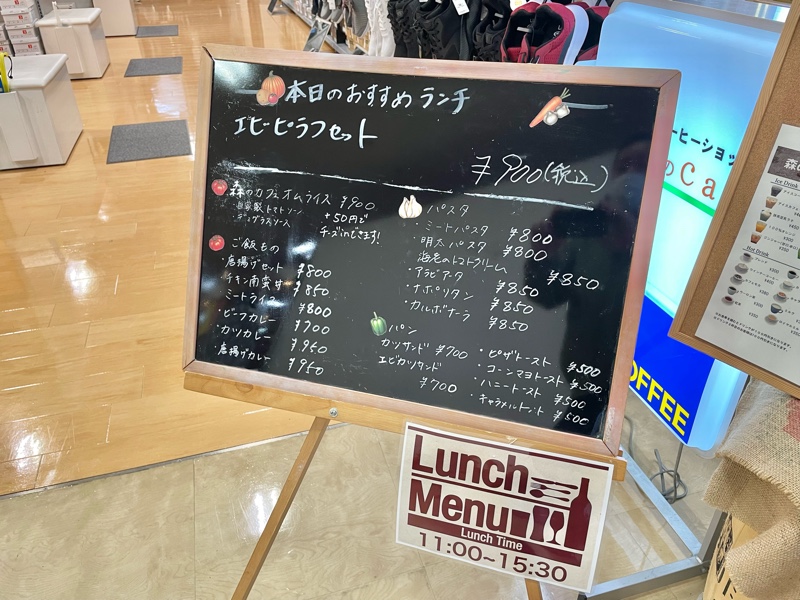 本日のおすすめランチ
エビピラフセット
¥900(税込)
森のカフェオムライス ¥900
・自家製トマトソース
・デミグラスソース
+50円で
チーズinできます!
ご飯もの
・唐揚げセット ¥800
チキン南蛮 ¥850
ミートライス ¥800
・ビーフカレー ¥700
・カツカレー ¥950
唐揚げカレー ¥950
パスタ
・ミートパスタ ¥800
・明太パスタ ¥800
海老のトマトクリーム ¥850
・アラビアータ ¥850
・ナポリタン ¥850
・カルボナーラ ¥850
パン
カツサンド ¥700
エビカツサンド ¥700
・ピザトースト ¥500
・コーンマヨトースト ¥500
・ハニートースト ¥500
・キャラメルトースト ¥500
Lunch
Menu
Lunch Time
11:00~15:30
ーヒーショッ
のCa
OFFEE
森の
Ice Drink
Hot Drink